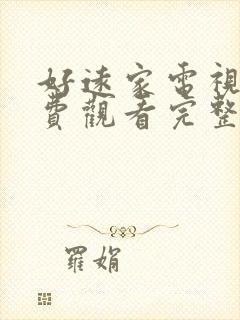 好遠家電視
費觀看完整
羅娟